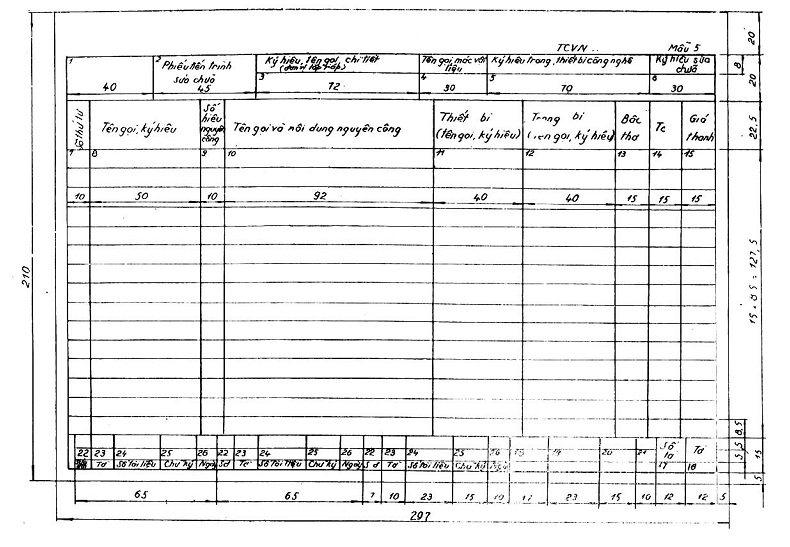 TCVN .. Mẫu 5
1 2 Phiếu tiến trình sửa chữa 3 Ký hiệu, tên gọi, chi tiết (đơn vị lắp ráp) 4 Tên gọi mác vật liệu 5 Ký hiệu trang, thiết bị công nghệ 6 Ký hiệu sửa chữa
40 45 72 30 70 30
20
8
20
Số thứ tự Tên gọi, ký hiệu Số hiệu nguyên công Tên gọi và nội dung nguyên công Thiết bị (tên gọi, ký hiệu) Trang bị (tên gọi, ký hiệu) Bậc thợ Tc Giá thành
22,5
7 8 9 10 11 12 13 14 15
10 50 10 92 40 40 15 15 15
210
15 × 8 5 = 127,5
8,5
22 23 24 25 26 22 23 24 25 26 22 23 24 25 26 18 19 20 21 Số tờ 17 Tờ 16
Tờ Số tài liệu Chữ ký Ngày Sđ Tờ Số tài liệu Chữ ký Ngày S đ Tờ Số tài liệu Chữ ký Ngày
5 5 15
5
65 65 7 10 23 15 10 17 23 15 10 12 12 5
297